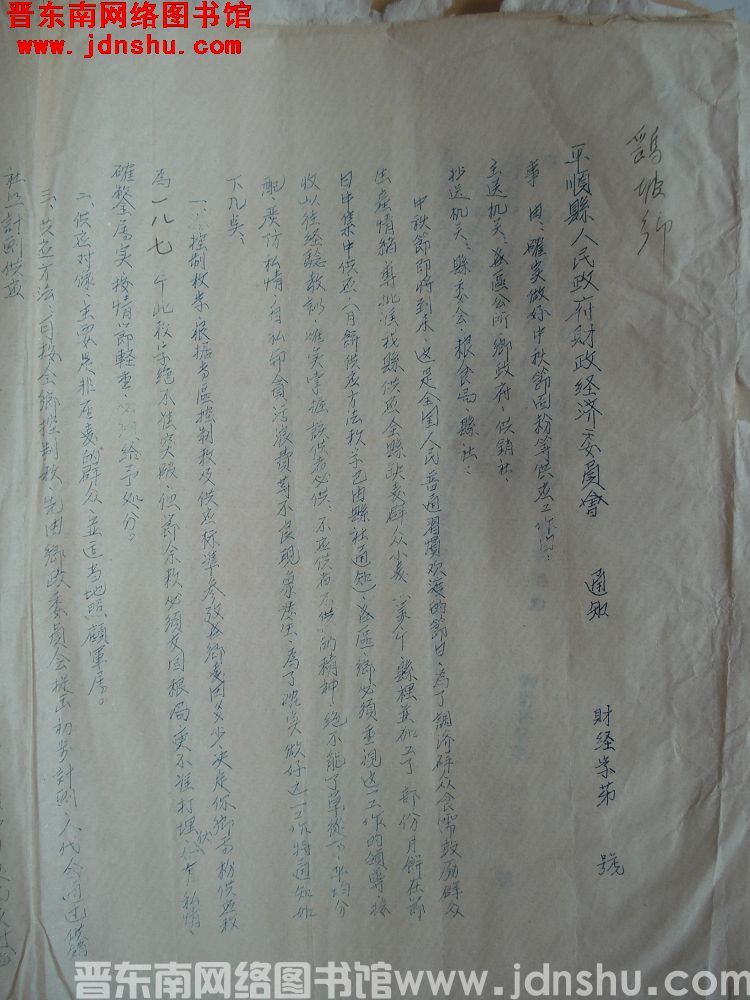 晋东南网络图书馆
www.jdnshu.com
坡乡
平順縣人民政府財政经济委員會 通知 財经業第 號
事由:確实做好中秋節面粉等供应工作由:
主送机关:各區公所、鄉政府、供銷社:
抄送机关:縣委会、粮食局、縣社:
中秋節即將到來,这是全国人民普通習慣欢渡的節日,为了調济群众食需鼓勵群众
生產情緒專此決我縣供应全縣缺麦群众小麦 万斤、縣裡並加工了一部份月餅在節
日中集中供应(月餅供应方法数字已由縣社通知)各區、鄉必須重視这一工作的領導接
收以往经驗教訓,確实掌握該供者必供、不应供者不供的精神,絕不能了草從下、平均分
配,嚴防私情、自私命貪污浪費等不良現象發生,為了確实做好这一工作特通知如
下几点:
一、控制数字、根据专區控制数及供应标準参攷各鄉麦田多少決定你鄉面粉供应数
為一八七 斤此数字絕不准突破,但節余数必須交回粮局,更不准打埋伏 私情、
確整全屬实,按情節輕重,必須給予处分。
二、供应对像、主要是非產麦的群众,並适当地照顧軍屬。
三、供应方法、可按全鄉控制数先由鄉政委員会提出初步計劃、人代会通过供銷
社統一計劃供应
晋东南网络图书馆 www.jdnshu.com